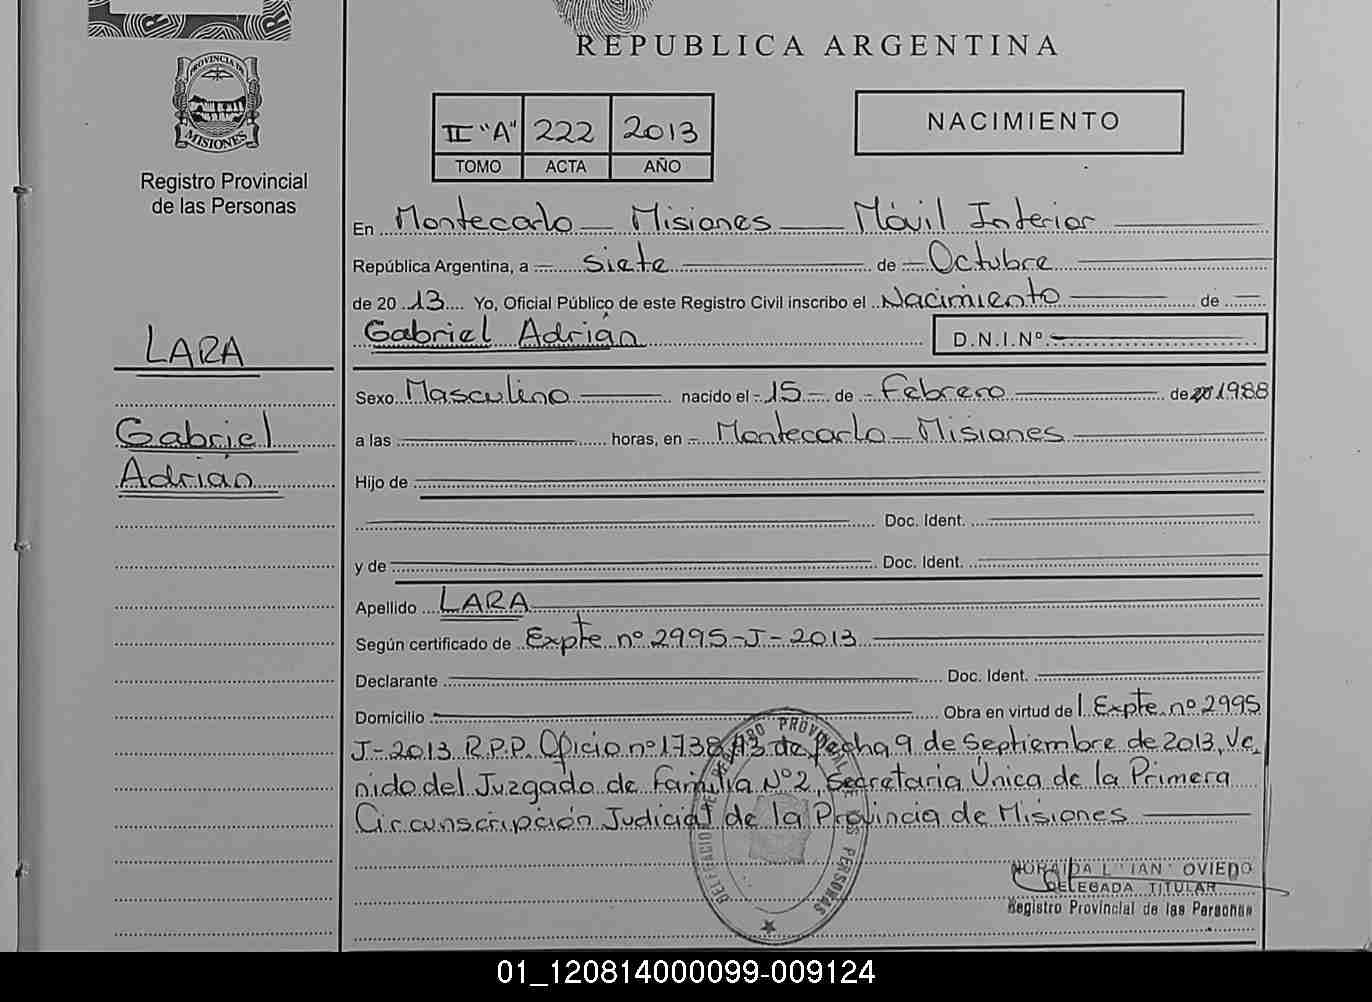 REPUBLICA ARGENTINA
PROVINCIA DE
MISIONES
Registro Provincial
de las Personas
II "A" 222 2013
TOMO ACTA AÑO
NACIMIENTO
En Montecarlo Misiones Móvil Interior
República Argentina, a siete de Octubre
de 20 13 Yo, Oficial Público de este Registro Civil inscribo el Nacimiento de
Gabriel Adrián
D.N.I.Nº
LARA
Gabriel
Adrián
Sexo Masculino nacido el 15 de Febrero de 1988
a las horas, en Montecarlo Misiones
Hijo de
Doc. Ident.
y de Doc. Ident.
Apellido LARA
Según certificado de Expte nº 2995-J-2013
Declarante Doc. Ident.
Domicilio Obra en virtud de Expte nº 2995
J-2013 R.P.P. Oficio nº 1738/13 de fecha 9 de septiembre de 2013, ve
nido del Juzgado de Familia Nº 2, Secretaria Única de la Primera
Circunscripción Judicial de la Provincia de Misiones
DELEGACION DEL REGISTRO PROVINCIAL DE LAS PERSONAS
OVIEDO
DELEGADA TITULAR
Registro Provincial de las Personas
01_120814000099-009124